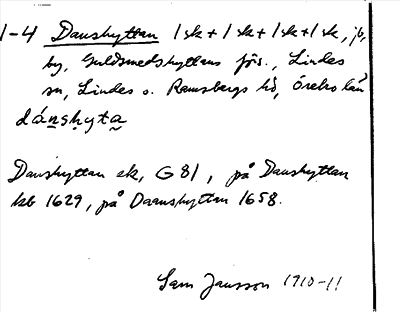 1-4 Danshyttan 1 sk + 1 sk + 1 sk + 1 sk, jb,
by, Guldsmedshyttans förs., Lindes
sn, Lindes o. Ramsbergs hd, Örebro län
dánshyta
Danshyttan ek, G 81, på Danshyttan
kb 1629, på Daanshyttan 1658.
Sam Jansson 1910-11